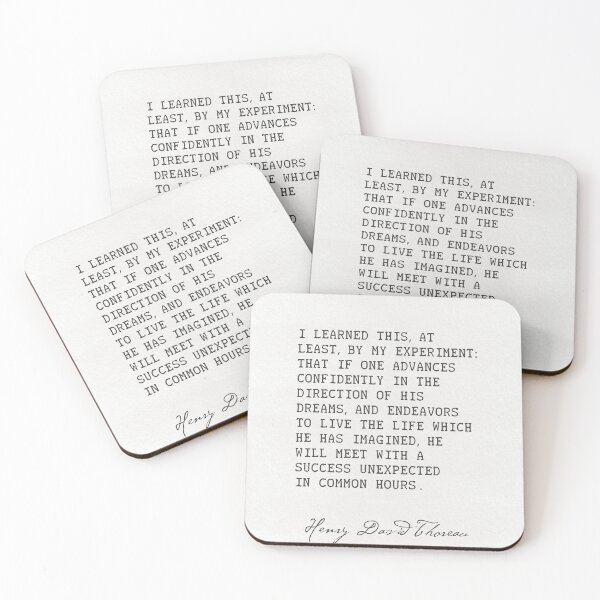 I LEARNED THIS, AT
LEAST, BY MY EXPERIMENT:
THAT IF ONE ADVANCES
CONFIDENTLY IN THE
DIRECTION OF HIS
DREAMS, AND ENDEAVORS
TO LI E WHICH
HE
I LEARNED THIS, AT
LEAST, BY MY EXPERIMENT:
THAT IF ONE ADVANCES
CONFIDENTLY IN THE
DIRECTION OF HIS
DREAMS, AND ENDEAVORS
TO LIVE THE LIFE WHICH
HE HAS IMAGINED, HE
WILL MEET WITH A
SUCCESS UNEXPECTED
I LEARNED THIS, AT
LEAST, BY MY EXPERIMENT:
THAT IF ONE ADVANCES
CONFIDENTLY IN THE
DIRECTION OF HIS
DREAMS, AND ENDEAVORS
TO LIVE THE LIFE WHICH
HE HAS IMAGINED, HE
WILL MEET WITH A
SUCCESS UNEXPECTED
IN COMMON HOURS.
Henry Da
I LEARNED THIS, AT
LEAST, BY MY EXPERIMENT:
THAT IF ONE ADVANCES
CONFIDENTLY IN THE
DIRECTION OF HIS
DREAMS, AND ENDEAVORS
TO LIVE THE LIFE WHICH
HE HAS IMAGINED, HE
WILL MEET WITH A
SUCCESS UNEXPECTED
IN COMMON HOURS.
Henry David Thoreau